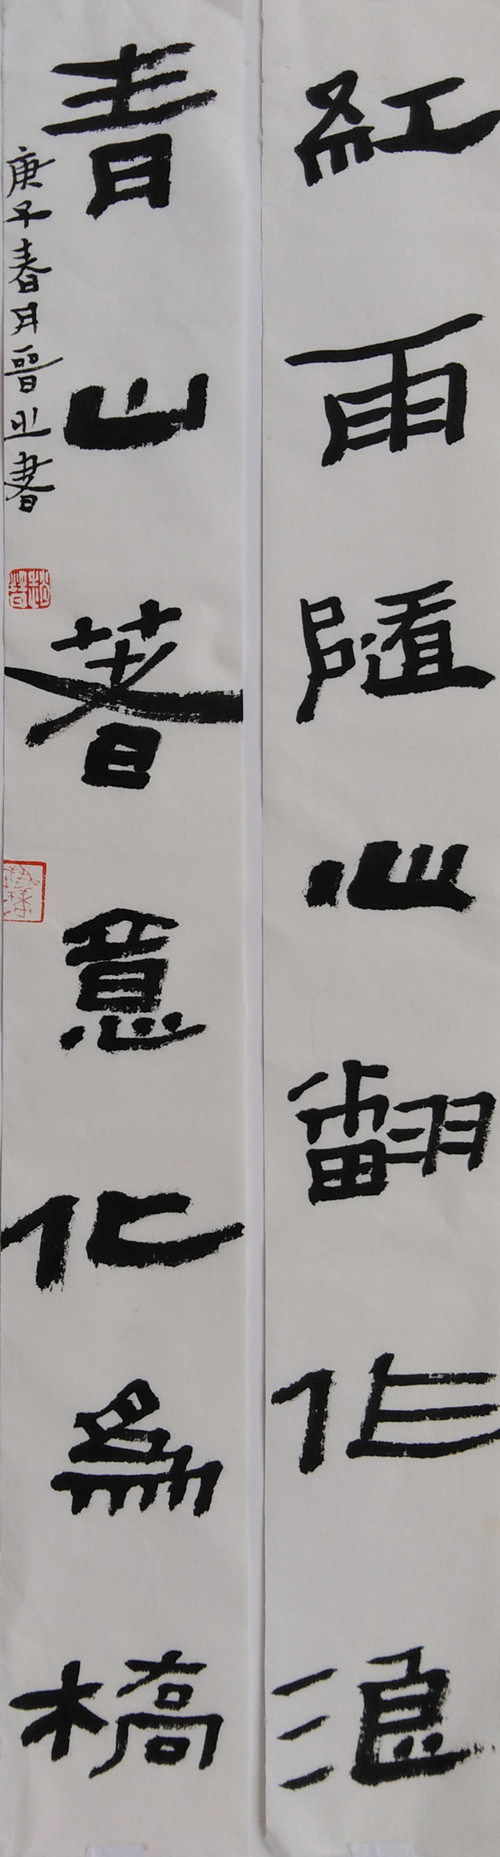 紅雨隨心翻作浪
青山著意化為橋
庚子春月晋业書